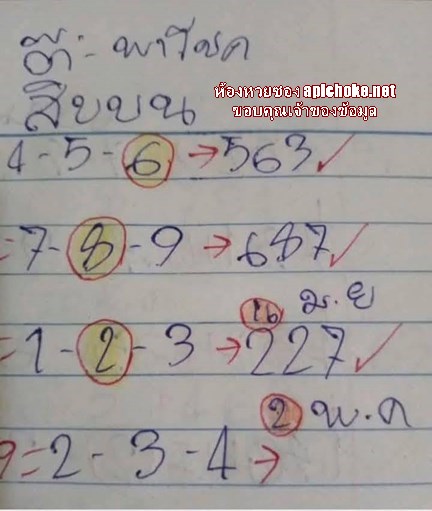 ตุ๊: พารีชค
ห้องหวยซอง apichoke.net
ขอบคุณเจ้าของข้อมูล
สิบบน
4-5-6→563✓
=7-8-9→687✓
16 ม.ย
=1-2-3→227✓
2 พ.ค
9=2-3-4→